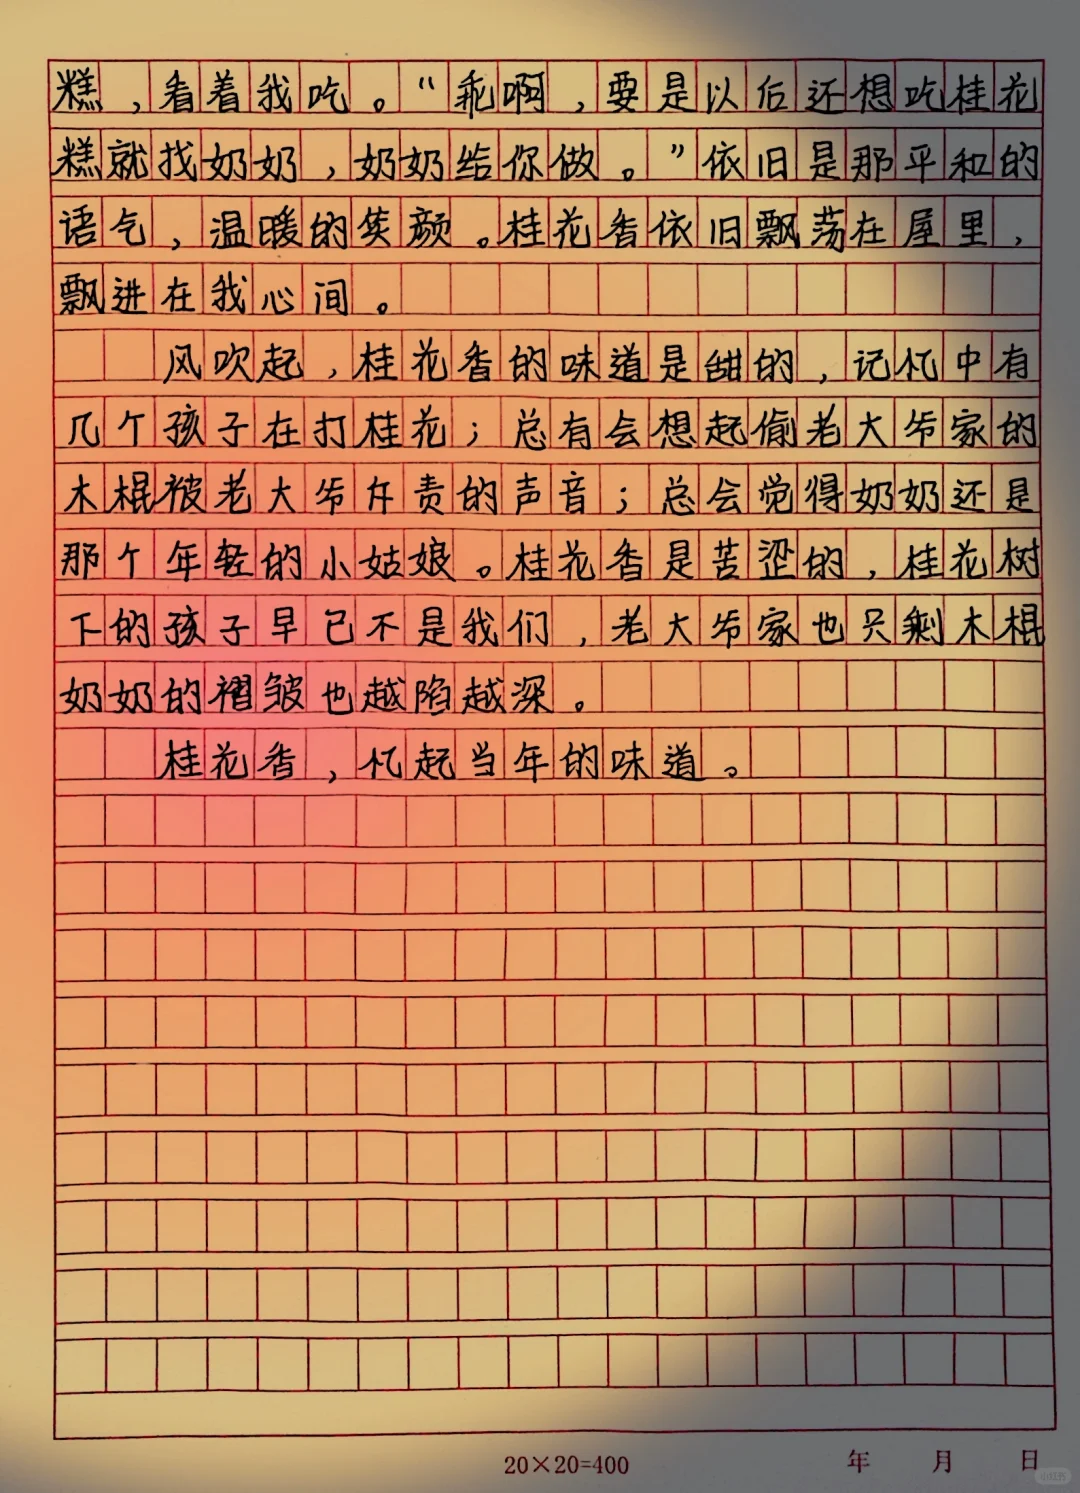 糕，看着我吃。“乖啊，要是以后还想吃桂花
糕就找奶奶，奶奶给你做。”依旧是那平和的
语气，温暖的笑颜。桂花香依旧飘荡在屋里，
飘进在我心间。
风吹起，桂花香的味道是甜的，记忆中有
几个孩子在打桂花；总有会想起偷老大爷家的
木棍被老大爷斥责的声音；总会觉得奶奶还是
那个年轻的小姑娘。桂花香是苦涩的，桂花树
下的孩子早已不是我们，老大爷家也只剩木棍
奶奶的褶皱也越陷越深。
桂花香，忆起当年的味道。
20×20=400 年 月 日
小红书